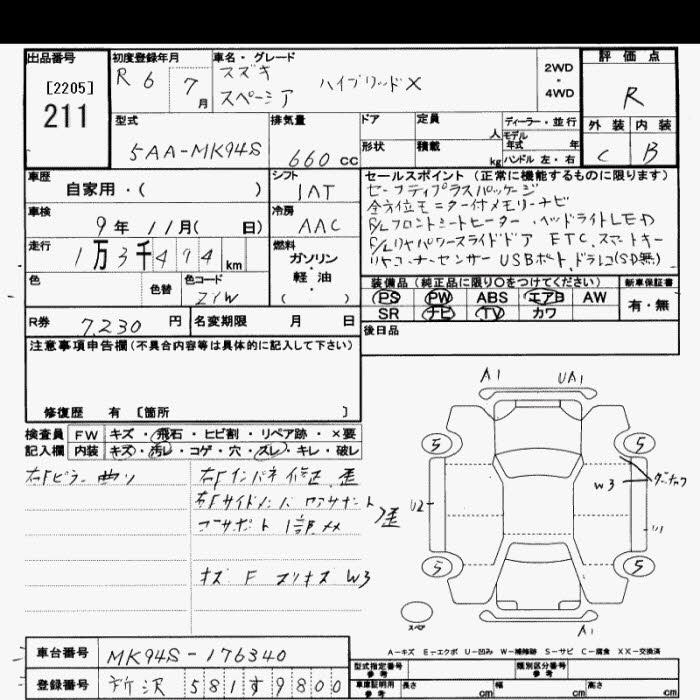 出品番号 初度登録年月 車名・グレード 評価点
[2205] R 6 7月 スズキ ハイブリッドX 2WD・4WD R
211 スペーシア
型式 排気量 ドア 定員 人 ディーラー・並行 外装 内装
5AA-MK94S 660cc 形状 積載 kg モデル年式 年 ハンドル 左・右 C B
車歴 シフト セールスポイント (正常に機能するものに限ります)
自家用・( ) IAT セーフティプラスパッケージ
車検 冷房 全方位モニター付メモリーナビ
9年11月( 日) AAC F/Lフロントシートヒーター ヘッドライトLED
走行 燃料 F/Lリヤパワースライドドア ETC スマートキー
1万3千494km ガソリン・軽油・( ) リヤコーナーセンサー USBポート、ドラレコ(SD無)
色 色替 色コード 装備品 (純正品に限り○をつけてください) 新車保証書
Z1W PS PW ABS エアB AW 有・無
SR ナビ TV カワ
R券 7,230円 名変期限 月 日 後日品
注意事項申告欄(不具合内容等は具体的に記入して下さい)
修復歴 有 [箇所 ]
検査員 FW キズ・飛石・ヒビ割・リペア跡・×要
記入欄 内装 キズ・汚レ・コゲ・穴・スレ・キレ・破レ
右Fピラー曲り 右Fインパネ修正、歪
右Fサイドメンバー
コアサポート 1部メメ 歪
キズ F W3
A1 UA1
5 5
U2 W3
U1
5 5
スペア A1
A-キズ E-エクボ U-凹み W-補修跡 S-サビ C-腐食 XX-交換済
車台番号 MK94S-176340 型式指定番号 参考 類別区分番号 参考
登録番号 所沢 581す9800 車庫証明用 参考 長さ cm 幅 cm 高さ cm